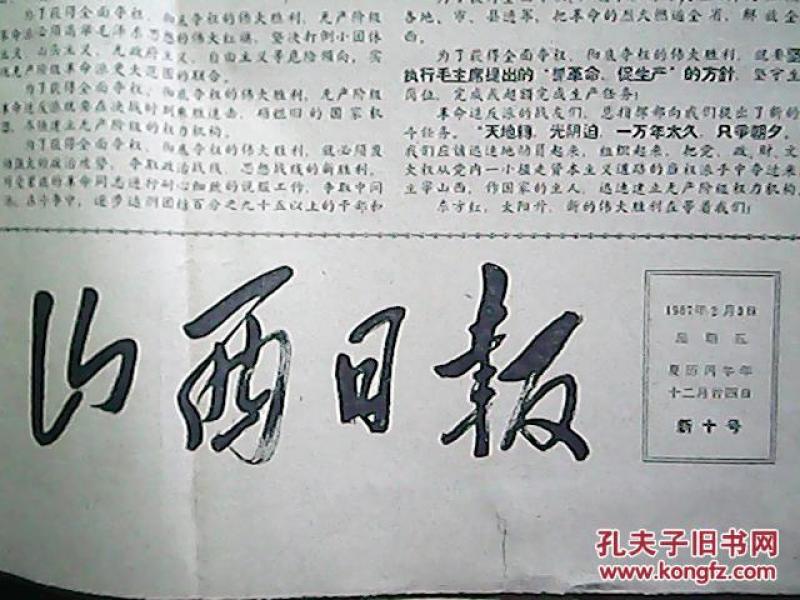 为了获得全面夺权、彻底夺权的伟大胜利，无产阶级
革命派必须高举毛泽东思想的伟大红旗，坚决打倒小团体
主义、山头主义、无政府主义、自由主义等危险倾向，实
现无产阶级革命派更大范围的联合。
为了获得全面夺权、彻底夺权的伟大胜利，无产阶级
革命造反派就要在决战时刻乘胜追击，
建立无产阶级的权力机构。
为了获得全面夺权、彻底夺权的伟大胜利，就必须发
动强大的政治攻势，争取政治战线、思想战线的新胜利，
革命同志进行耐心细致的说服工作，争取中间
逐步达到团结百分之九十五以上的干部和
各地、市、县进军，把革命的烈火燃遍全省，解放全
西。
为了获得全面夺权、彻底夺权的伟大胜利，就要坚
执行毛主席提出的“抓革命，促生产”的方針，坚守生
岗位，完成或超额完成生产任务；
革命造反派的战友们，总指挥部向我们提出了新的
斗任务。“天地转，光阴迫，一万年太久，只爭朝夕。
我们应该迅速地动员起来，组织起来，把党、政、财、文
大权从党内一小撮走资本主义道路的当权派手中夺过来，
主宰山西，作国家的主人，迅速建立无产阶级权力机构。
东方红，太阳升，新的伟大胜利在等着我们！
山西日报
1967年2月3日
星期五
夏历丙午年
十二月廿四日
新十号
孔夫子旧书网
www.kongfz.com